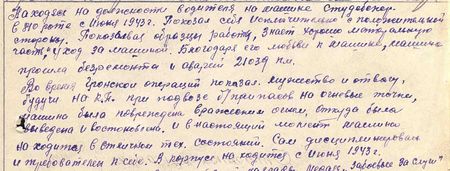 Находясь на должности водителя на машине Студебекер.
в 310 роте с Июня 1943г. Показал себя исключительно с положительной
стороны. Показывая образцы работы, знает хорошо материальную
часть и уход за машиной. Благодаря его любви к машине, машина
прошла без ремонта и аварий 21039 км.
Во время Уронской операции показал мужество и отвагу,
будучи на К.П. при подвозе б/припасов на огневые точки,
машина была повреждена вражеским огнём, откуда была
выведена и востоновлена. и в настоящий момент машина
находится в отличном тех. состоянии. Сам дисциплинирован
и требователен к себе. В корпусе находится с Июня 1943г.
медаль "За боевые заслуги"